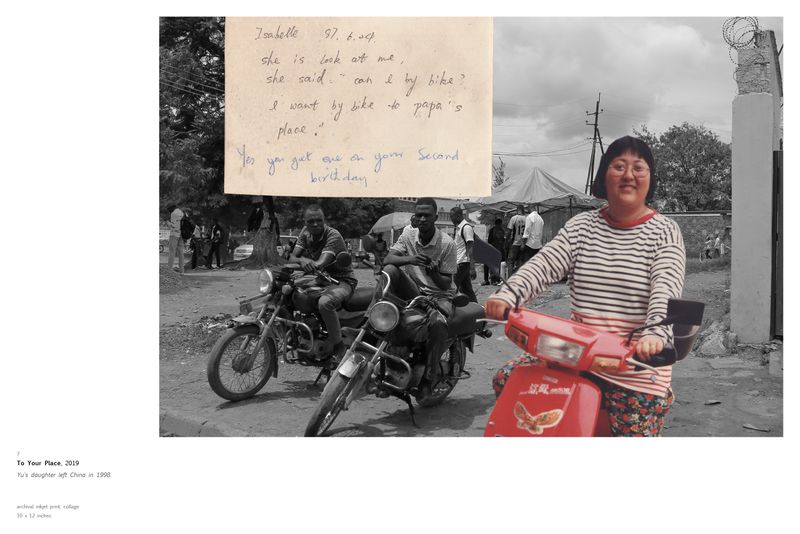 Isabelle 97. 6.04.
she is look at me,
she said. "can I by bike?
I want by bike to papa's
place."
Yes you get one on your Second
birthday
7
To Your Place, 2019
Yu's daughter left China in 1998.
archival inkjet print, collage
10 x 12 inches